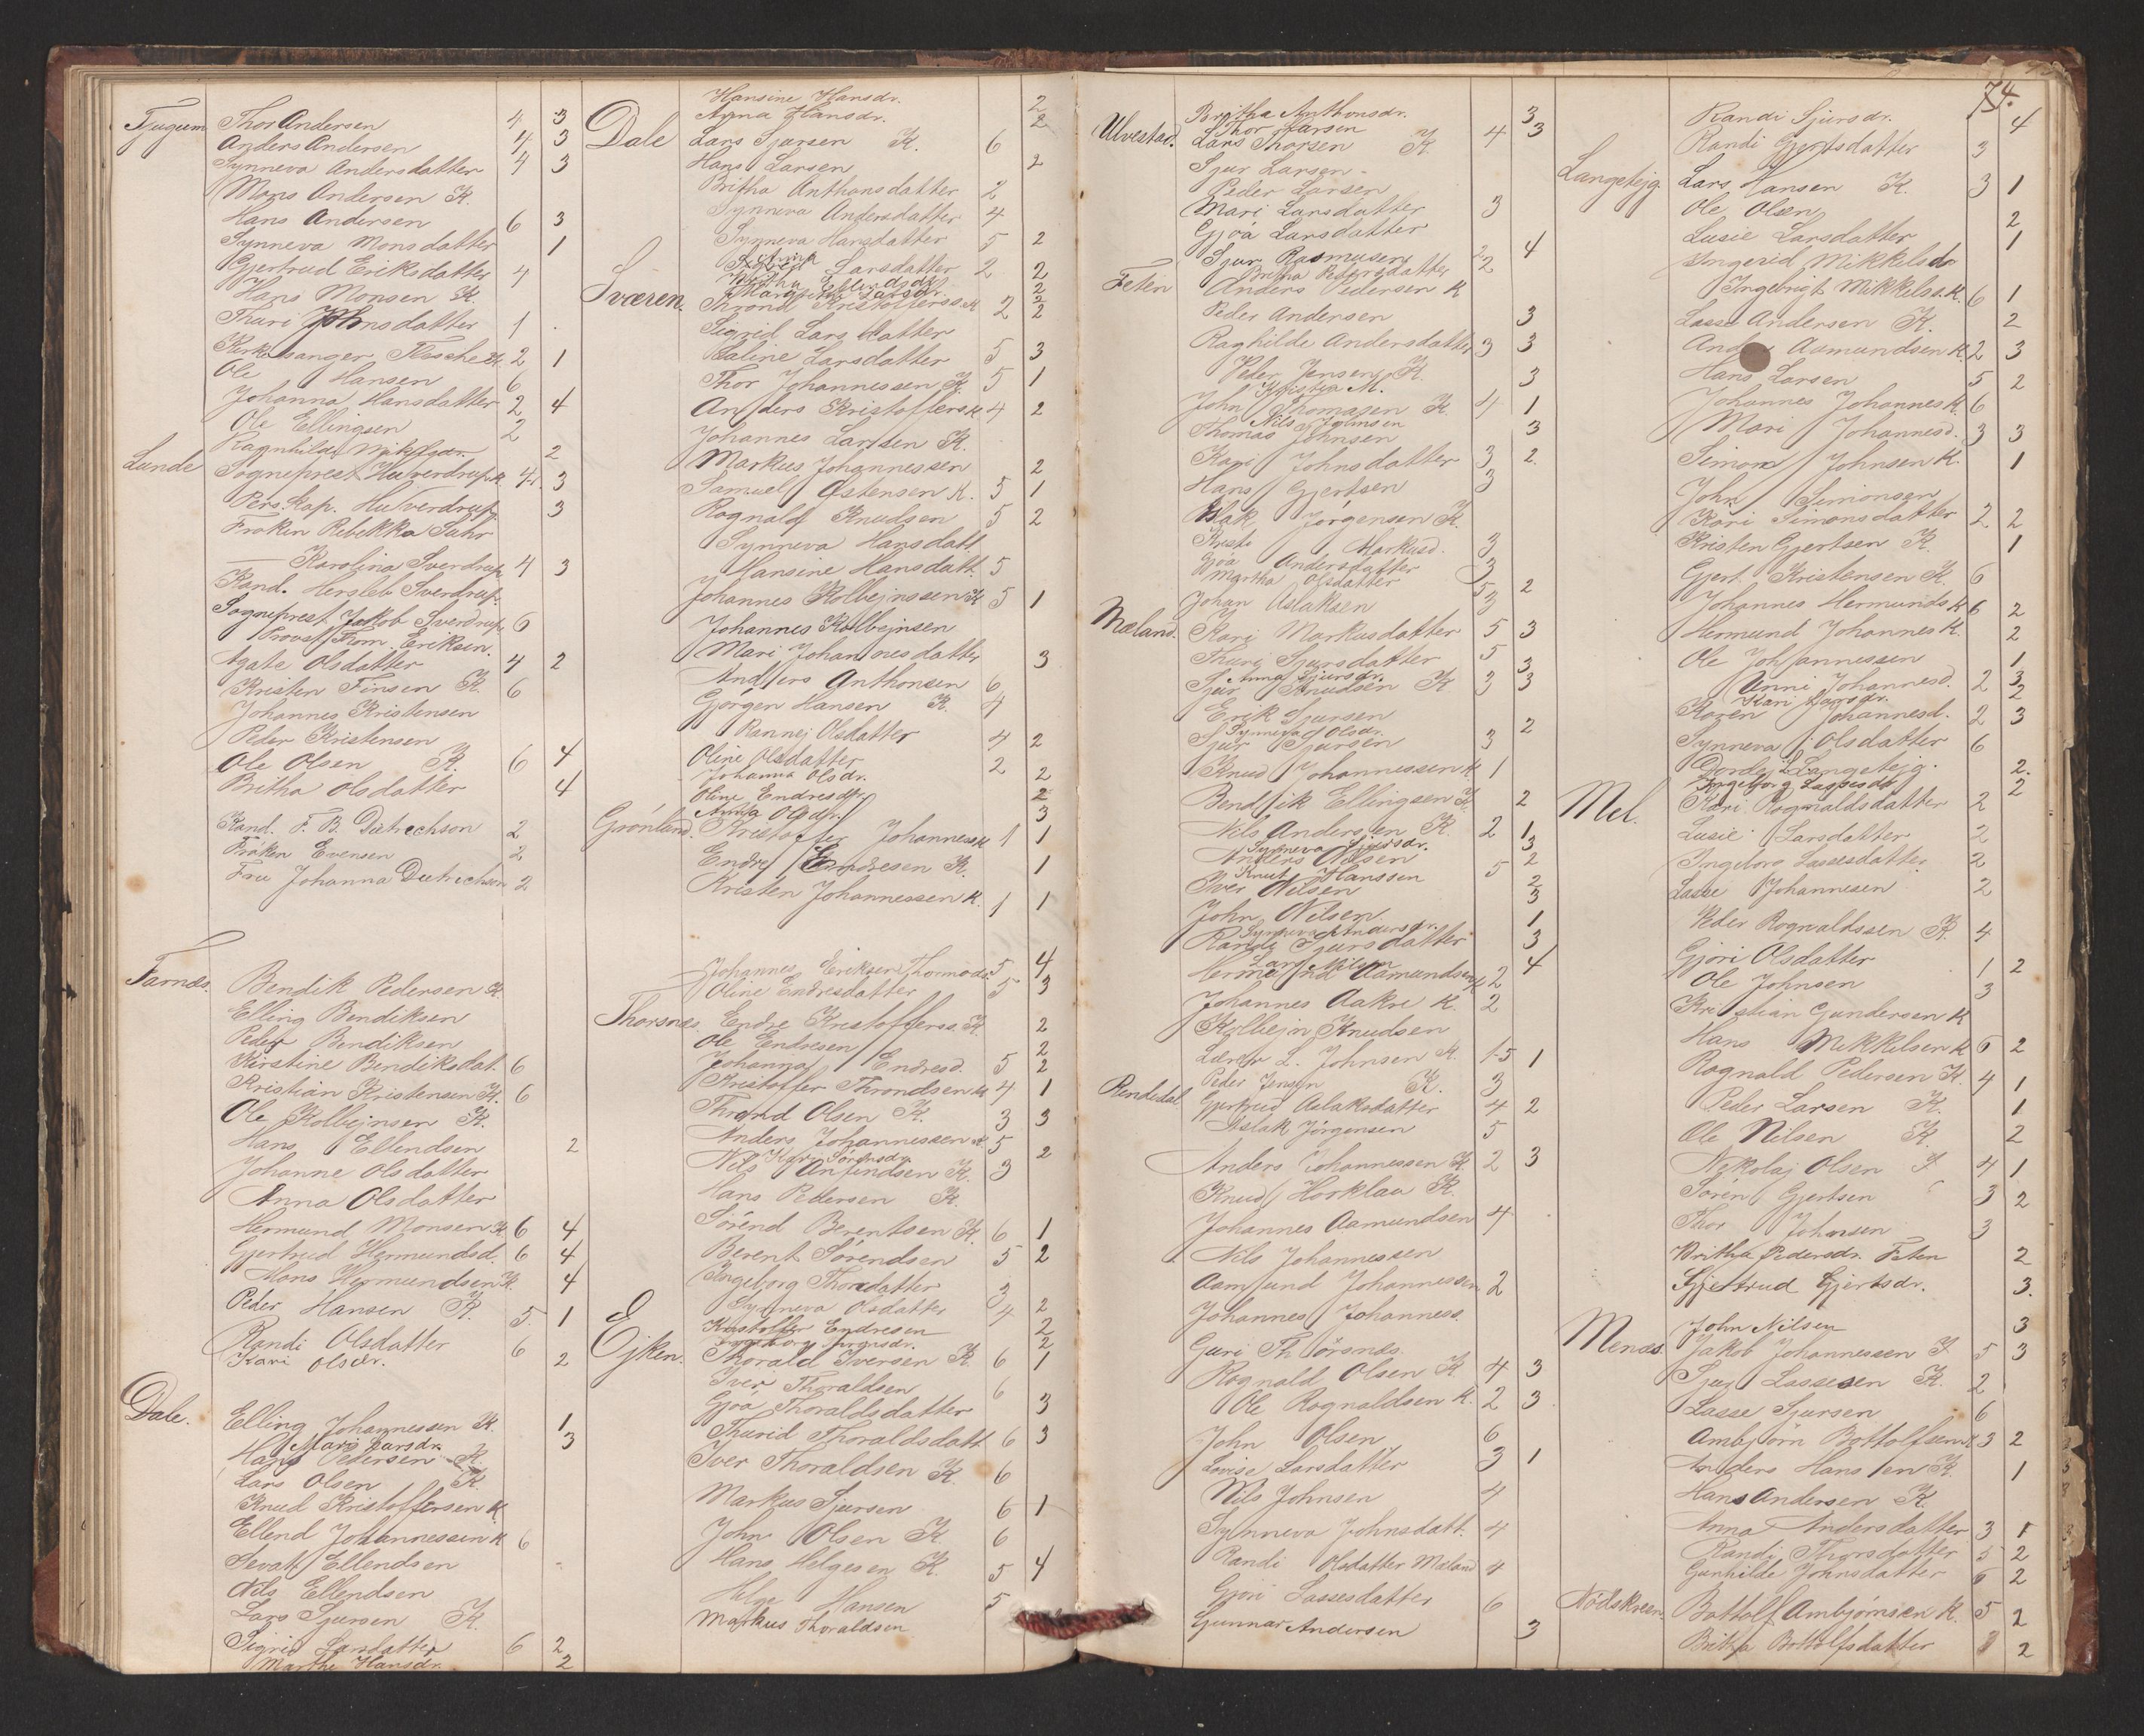 Tjugum Thor Andersen 4 3
Anders Andersen 4 3
Synneva Andersdatter 4 3
Mons Andersen K.
Hans Andersen 6 3
Synneva Monsdatter 1
Gjertrud Eriksdatter 4
Hans Monsen K.
Thuri Johnsdatter 1
Kirkesanger 2 1
Ole Hansen 6
Johanna Hansdatter 2 4
Ole Ellingsen 2
Ragnhilde 2
Lunde Sogneprest K. 4 3
Pers. Kap. 3
Frøken Rebekka
— Karolina Sverdrup 4 3
Kand. Hersleb Sverdrup
Sogneprest Jakob Sverdrup 6
Provst Thom. Eriksen.
Agate Olsdatter 4 2
Kristen Finsen K. 6
Johannes Kristensen
Peder Kristensen
Ole Olsen K. 6 4
Britha Olsdatter 4
Kand. F. B. Dietrechson 2
Frøken Evensen 2
Fru Johanna Dietrechson 2
Farnæs. Bendik Pedersen K.
Elling Bendiksen
Peder Bendiksen
Kirstine Bendiksdat. 6
Kristian Kristensen K. 6
Ole Kolbejnsen K.
Hans Ellendsen 2
Johanne Olsdatter
Anna Olsdatter
Hermund Monsen K. 6 4
Gjertrud Hermundsd. 6 4
Mons Hermundsen K. 4
Peder Hansen K. 5 1
Randi Olsdatter 6
Kari Olsdr. 2
Dale. Elling Johannessen K. 1
Mari Larsdr. 3
Hans Pedersen K.
Lars Olsen K.
Knud Kristoffersen K
Ellend Johannessen K 6
Sevat Ellendsen
Nils Ellendsen
Lars Sjursen K.
Sigrid Larsdatter 6 2
Marthe Hansdr. 2
Hansine Hansdr. 2
Anna Hansdr. 2
Dale Lars Sjursen K. 6
Hans Larsen 2
Britha Anthonsdatter 2
Synneva Andersdatter 4
Synneva Hansdatter 5 2
Larsdatter 2 2
Britha Ellendsdtr. 2
Margrethe Larsdr. 2
Sværen. Thrond Kristofferss. K 2 2
Sigrid Larsdatter
Saline Larsdatter 5 3
Thor Johannessen K. 5 1
Anders Kristoffers. K 4 2
Johannes Larssen K.
Markus Johannessen 2
Samuel Østensen K. 5 1
Rognald Knudsen 5 2
Synneva Hansdatt.
Hansine Hansdatt. 5
Johannes Kolbejnssen K 5 1
Johannes Kolbejnsen
Mari Johannesdatter 3
Anders Anthonsen 6
Gjørgen Hansen K. 4
Rannej Olsdatter 4 2
Oline Olsdatter 2
Johanna Olsdr. 2
Oline Endresdtr. 2
Anna Olsdtr. 3
Grønland. Kristoffer Johanness. K 1 1
Endre Endresen K. 1
Kristen Johannessen K. 1 1
Johannes Eriksen Thormods. 5 4
Oline Endresdatter 5 3
Thorsnæs. Endre Kristofferss. K 2
Ole Endresen 2
Johanna Endresd. 5 2
Kristoffer Throndsen K 4 1
Thrond Olsen K. 3 3
Anders Johannessen K. 5
Kari Sørensdr. 2
Nils Anfindsen K. 3
Hans Pedersen K.
Sørend Berentsen K. 6 1
Berent Sørendsen 5 2
Ingeborg Thorsdatter 3
Synneva Olsdatter 4 2
Kristoffer Endresen 2
Ingeborg 2
Ejken. Thorald Iversen K. 6 1
Iver Thoraldsen 6
Gjøa Thoraldsdatter 3
Thurid Thoraldsdatt 6 3
Iver Thoraldsen K 6
Markus Sjursen 6 1
John Olsen K 6
Hans Helgesen K. 5 4
Helge Hansen 5
Markus Thoraldsen
74.
Britha Anthonsdr. 3
Thor Larsen 3
Ulvestad. Lars Thorsen K 4
Sjur Larsen
Peder Larsen
Mari Larsdatter 3
Gjøa Larsdatter
Sjur Rasmusen 2 4
Britha Pedersdatter 2
Feten Anders Pedersen K
Peder Andersen 3
Raghilde Andersdatter 3 3
Peder Jensen K. 3
Kristen M.
John Thomasen K. 4 1
Nils Johnsen 3
Thomas Johnsen
Kari Johnsdatter 3 2
Hans Gjertsen 3
Jørgensen K.
Kristi Markusd. 3
Gjøa Andersdatter 3
Martha Olsdatter 5 2
Johan Aslaksen 3
Mæland. Kari Markusdatter 5 3
Thuri Sjursdatter 5
Anna Sjursdr. 3
Sjur Knudsen K 3 3
Erik Sjursen
Synneva Olsdr. 2
Sjur Sjursen 3
Knud Johannessen K. 1
Bendik Ellingsen K. 2
Nils Andersen K. 2 1
Synneva Sjursdr. 3
Anders Nilsen 5 2
Knut Hanssen 2
Iver Nilsen 3
John Nilsen 1
Synneva Andersdr. 3
Randi Sjursdatter
Lars Nilsen 4
Hermund Aamundsen K 2
Johannes Aakre K. 2
Kolbejn Knudsen
Lærer L. Johnsen K. 1-5 1
Peder Jensen K. 3
Rendedal Gjertrud Aslaksdatter 4 2
Aslak Jørgensen 5
Anders Johannessen K. 2 3
Knud Horklau K.
Johannes Aamundsen 4
Nils Johannessen
Aamund Johannessen 2
Johannes Johanness.
Guri Thorsnæs.
Rognald Olsen K. 4 3
Ole Rognaldsen K. 2 3
John Olsen 6
Lovise Larsdatter 3 1
Nils Johnsen 4
Synneva Johnsdatt. 4
Randi Olsdatter Mæland 4
Gjøri Lassesdatter 6
Gunnar Andersen 3
Randi Sjursdr. 4
Randi Gjertsdatter 3
Langetejg. Lars Hansen K. 3 1
Ole Olsen 2
Lusie Larsdatter 1
Ingerid Mikkelsdr
Ingebrigt Mikkelss. K. 6 1
Lasse Andersen K. 2
Aamundsen K. 2 3
Hans Larsen 5 2
Johannes Johannes K. 6
Mari Johannesd. 3 3
Simon Johnsen K. 1
John Simonsen
Kari Simonsdatter 2 2
Kristen Gjertsen K. 1
Gjert Kristensen K. 6
Johannes Hermunds K 6 2
Hermund Johannes K. 2
Ole Johannessen 1
Unni Johannesd. 2 3
Kari Larsdr. 2
Karen Johannesd. 2 3
Synneva Olsdatter 6
Dorde L. Langetejg. 2.
Ingeborg Lassesdr 2
Mel. Kari Rognaldsdatter 2
Lusie Larsdatter 2
Ingeborg Lassesdatter 2
Lasse Johannesen 2
Peder Rognvaldssen K. 4
Gjøri Olsdatter 1 2
Ole Johnsen 3
Kristian Gundersen K
Hans Mikkelsen K 6 2
Rognald Pedersen K. 4 1
Peder Larsen K. 1
Ole Nilsen K. 2
Nikolaj Olsen I. 4 1
Søren Gjertsen 3 2
Thor Johnsen 3
Britha Pedersdr. Feten 2
Gjertrud Gjertsdr. 3.
John Nilsen 3
Menæs. Jakob Johannessen I. 5 3
Sjur Lassesen K. 2
Lasse Sjursen 6
Ambjørn Bottolfsen K 3 2
Anders Hanssen K. 1
Hans Andersen K.
Anna Andersdatter 3 1
Randi Thorsdatter 5 2
Gunhilde Johnsdatter 6 2
Nødskreen. Bottolf Ambjørnsen K. 5 2
Britha Bottolfsdatter 3 2